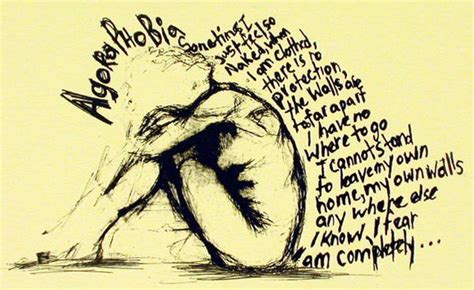 AgoraPHoBia
Sometimes I
just feel so
Naked when
I am clothed,
there is no
protection,
the walls are
to far apart
I have no
where to go
I cannot stand
to leave my own
home, my own walls
any where else
I know, I fear
I am completely...